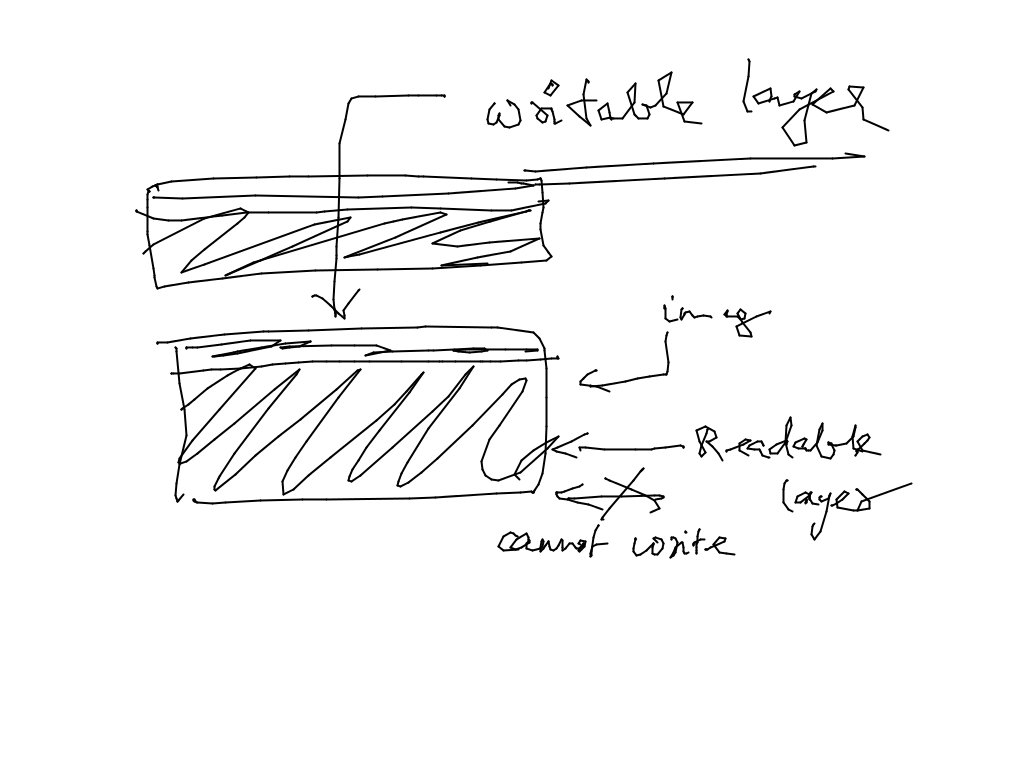 writable layer
imag
Readable
layer
cannot write